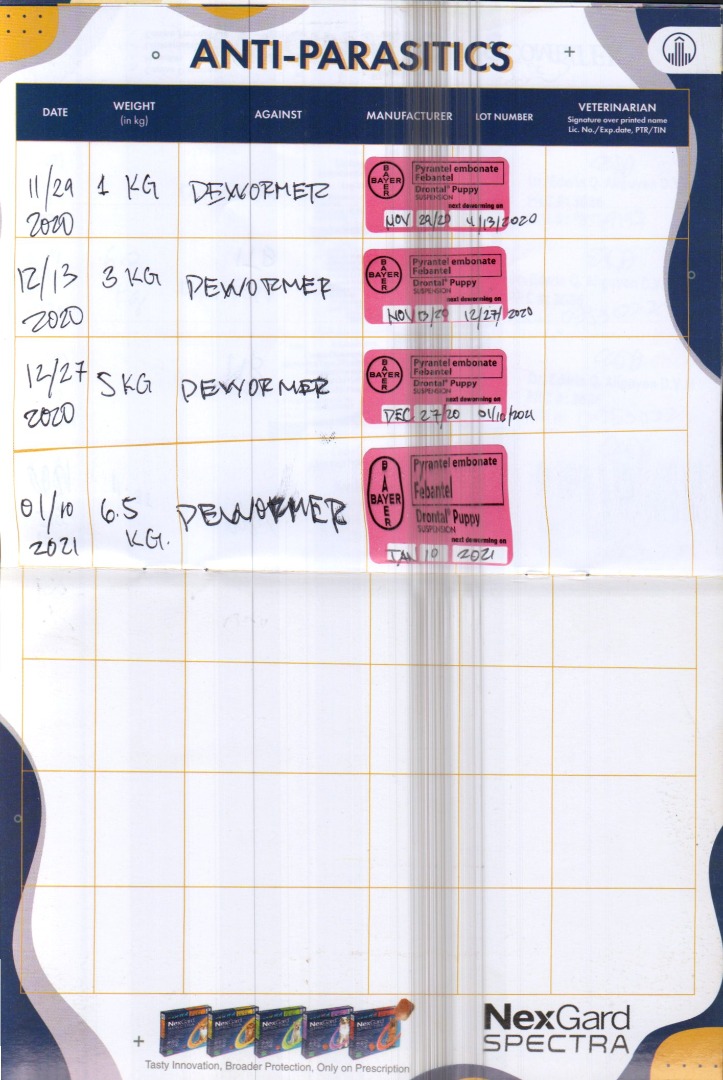 ANTI-PARASITICS
DATE
WEIGHT
(in kg)
AGAINST
MANUFACTURER
LOT NUMBER
VETERINARIAN
Signature over printed name
Lic. No./Exp.date, PTR/TIN
11/29
2020
1 KG
DEWORMER
BAYER
BAYER
Pyrantel embonate
Febantel
Drontal® Puppy
SUSPENSION
next deworming on
NOV 29/20
4/13/2020
12/13
2020
3 KG
DEWORMER
BAYER
BAYER
Pyrantel embonate
Febantel
Drontal® Puppy
SUSPENSION
next deworming on
NOV 13/20
12/27/2020
12/27
2020
5 KG
DEWORMER
BAYER
BAYER
Pyrantel embonate
Febantel
Drontal® Puppy
SUSPENSION
next deworming on
DEC 27/20
01/10/2021
01/10
2021
6.5
KG.
DEWORMER
BAYER
BAYER
Pyrantel embonate
Febantel
Drontal® Puppy
SUSPENSION
next deworming on
JAN 10
2021
NexGard
NexGard
NexGard
NexGard
NexGard
Tasty Innovation, Broader Protection, Only on Prescription
NexGard
SPECTRA